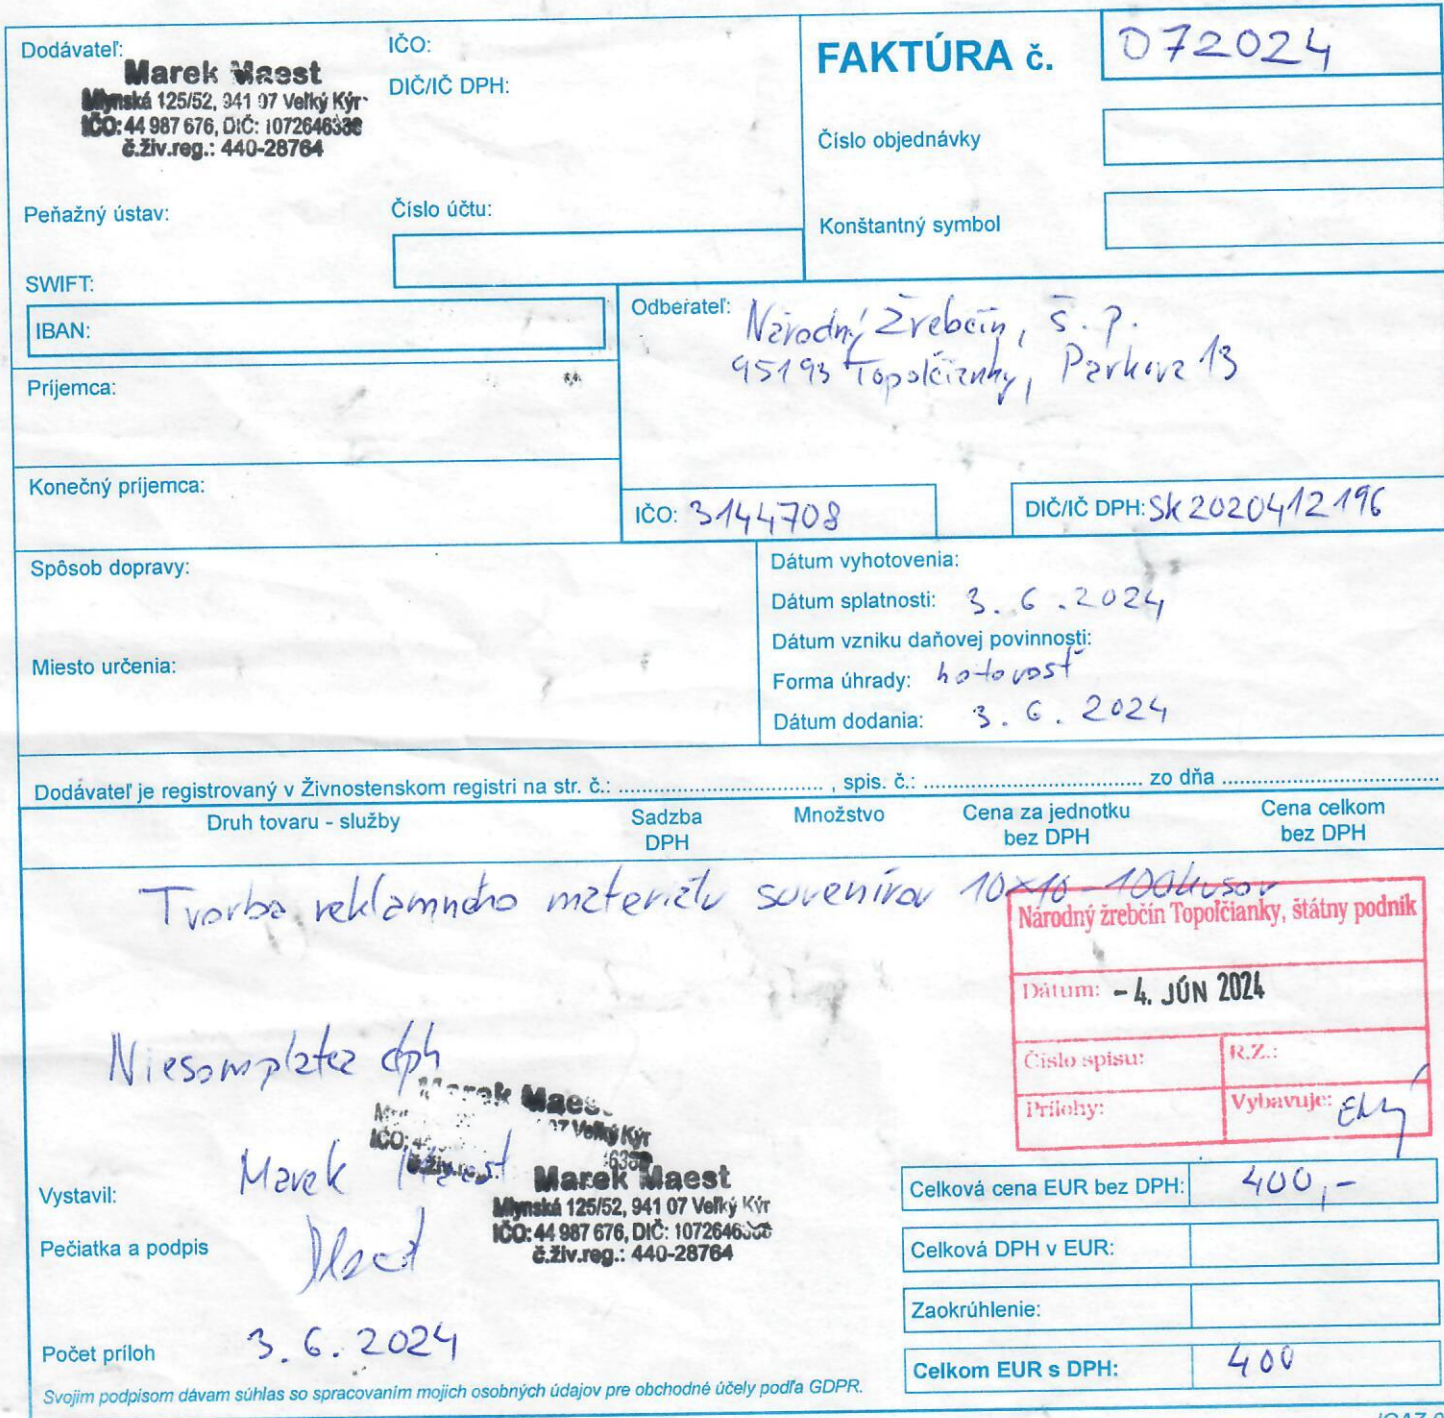 Dodávateľ:
Marek Maest
Mlynská 125/52, 941 07 Veľký Kýr
IČO: 44 987 676, DIČ: 1072646336
č.živ.reg.: 440-28764
IČO:
DIČ/IČ DPH:
FAKTÚRA č. 072024
Číslo objednávky
Konštantný symbol
Peňažný ústav:
Číslo účtu:
SWIFT:
IBAN:
Príjemca:
Konečný príjemca:
Odberateľ: Národný Žrebčín, š. p.
95193 Topoľčianky, Parková 13
IČO: 3144708
DIČ/IČ DPH: SK2020412196
Spôsob dopravy:
Miesto určenia:
Dátum vyhotovenia:
Dátum splatnosti: 3. 6. 2024
Dátum vzniku daňovej povinnosti:
Forma úhrady: hotovosť
Dátum dodania: 3. 6. 2024
Dodávateľ je registrovaný v Živnostenskom registri na str. č.: .................... , spis. č.: .................... zo dňa ....................
Druh tovaru - služby
Sadzba DPH
Množstvo
Cena za jednotku bez DPH
Cena celkom bez DPH
Tvorba reklamného materiálu suvenírov 10x10 - 100kusov
Národný žrebčín Topoľčianky, štátny podnik
Dátum: - 4. JÚN 2024
Číslo spisu:
R.Z.:
Prílohy:
Vybavuje:
Niesom platca dph
Marek Maest
07 Veľký Kýr
IČO:
Vystavil: Marek Maest
Marek Maest
Mlynská 125/52, 941 07 Veľký Kýr
IČO: 44 987 676, DIČ: 1072646336
č.živ.reg.: 440-28764
Pečiatka a podpis
Počet príloh 3. 6. 2024
Celková cena EUR bez DPH: 400,-
Celková DPH v EUR:
Zaokrúhlenie:
Celkom EUR s DPH: 400
Svojim podpisom dávam súhlas so spracovaním mojich osobných údajov pre obchodné účely podľa GDPR.